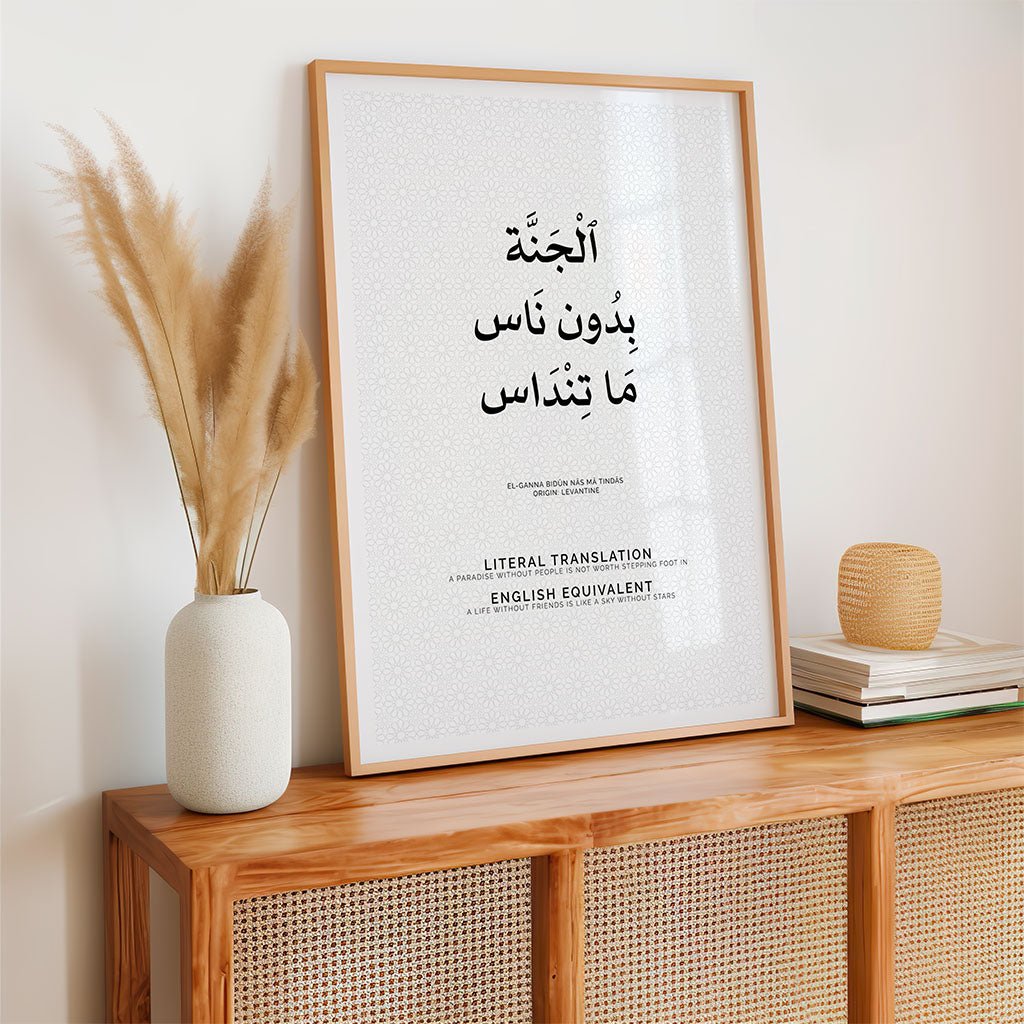 ٱلْجَنَّة
بِدُون نَاس
مَا تِنْدَاس
EL-GANNA BIDŪN NĀS MĀ TINDĀS
ORIGIN: LEVANTINE
LITERAL TRANSLATION
A PARADISE WITHOUT PEOPLE IS NOT WORTH STEPPING FOOT IN
ENGLISH EQUIVALENT
A LIFE WITHOUT FRIENDS IS LIKE A SKY WITHOUT STARS